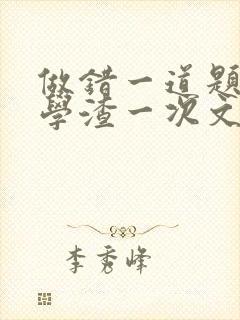 做錯一道題
學渣一次文
李秀峰